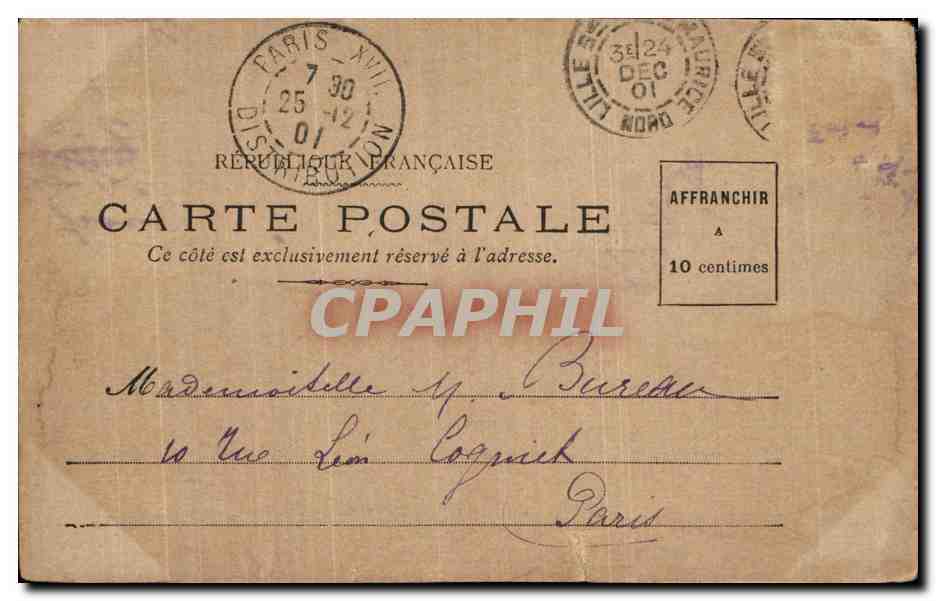 PARIS XVII
7 30
25 -12
01
DISTRIBUTION
LILLE ST MAURICE
3E 24
DEC
01
NORD
LILLE
RÉPUBLIQUE FRANÇAISE
CARTE POSTALE
Ce côté est exclusivement réservé à l'adresse.
AFFRANCHIR
A
10 centimes
CPAPHIL
Mademoiselle M. Bureau
10 rue Léon Cogniet
Paris